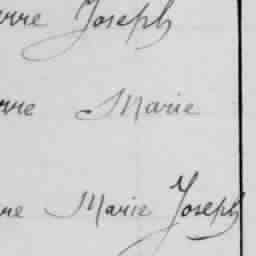 erre Joseph
rre Marie
re Marie Joseph